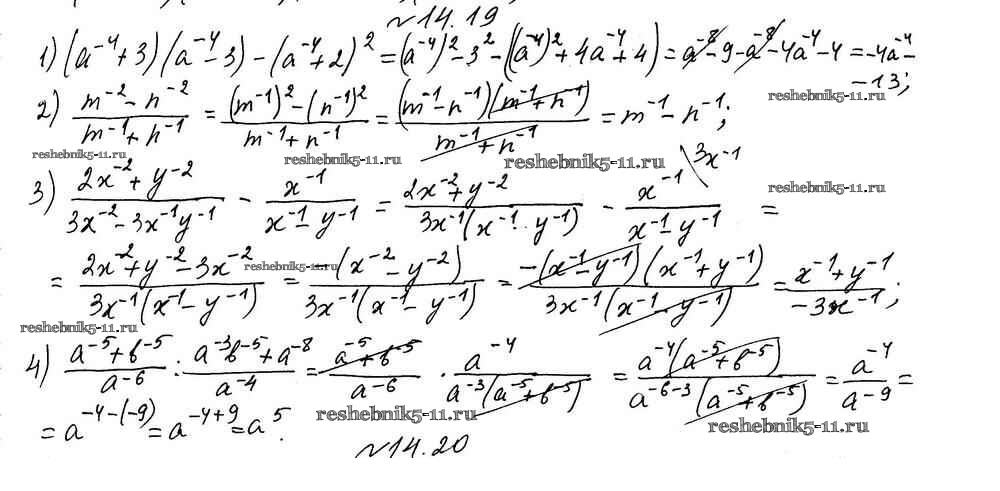 №14.19
1) (a⁻⁴+3)(a⁻⁴-3)-(a⁻⁴+2)²=(a⁻⁴)²-3²-((a⁻⁴)²+4a⁻⁴+4)=a⁻⁸-9-a⁻⁸-4a⁻⁴-4=-4a⁻⁴-
-13;
reshebnik5-11.ru
2) (m⁻²-n⁻²)/(m⁻¹+n⁻¹) = ((m⁻¹)²-(n⁻¹)²)/(m⁻¹+n⁻¹) = ((m⁻¹-n⁻¹)(m⁻¹+n⁻¹))/(m⁻¹+n⁻¹) = m⁻¹-n⁻¹;
reshebnik5-11.ru reshebnik5-11.ru reshebnik5-11.ru
3) (2x⁻²+y⁻²)/(3x⁻²-3x⁻¹y⁻¹) - x⁻¹/(x⁻¹-y⁻¹) = (2x⁻²+y⁻²)/(3x⁻¹(x⁻¹-y⁻¹)) - x⁻¹\3x⁻¹/(x⁻¹-y⁻¹) =
reshebnik5-11.ru
= (2x⁻²+y⁻²-3x⁻²)/(3x⁻¹(x⁻¹-y⁻¹)) = -(x⁻²-y⁻²)/(3x⁻¹(x⁻¹-y⁻¹)) = (-(x⁻¹-y⁻¹)(x⁻¹+y⁻¹))/(3x⁻¹(x⁻¹-y⁻¹)) = (x⁻¹+y⁻¹)/(-3x⁻¹);
reshebnik5-11.ru
reshebnik5-11.ru
4) (a⁻⁵+b⁻⁵)/a⁻⁶ : (a⁻³b⁻⁵+a⁻⁸)/a⁻⁴ = (a⁻⁵+b⁻⁵)/a⁻⁶ · a⁻⁴/(a⁻³(a⁻⁵+b⁻⁵)) = (a⁻⁴(a⁻⁵+b⁻⁵))/(a⁻⁶⁻³(a⁻⁵+b⁻⁵)) = a⁻⁴/a⁻⁹ =
= a⁻⁴⁻⁽⁻⁹⁾ = a⁻⁴⁺⁹ = a⁵.
reshebnik5-11.ru
reshebnik5-11.ru
№14.20